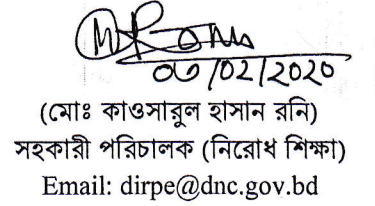 ০৩/02/2020
(মোঃ কাওসারুল হাসান রনি)
সহকারী পরিচালক (নিরোধ শিক্ষা)
Email: dirpe@dnc.gov.bd